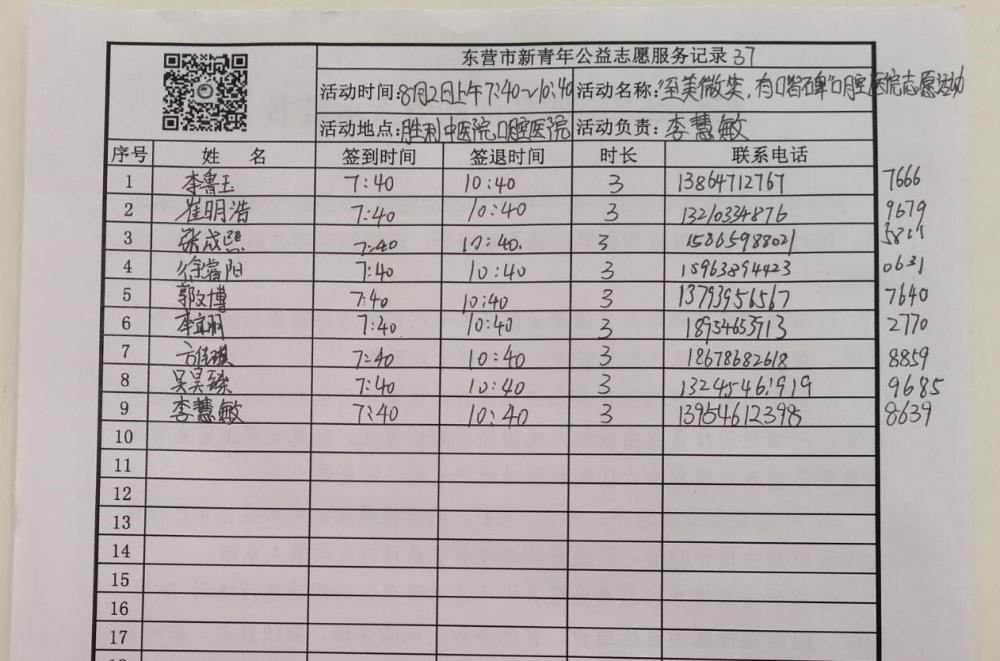 东营市新青年公益志愿服务记录 37
活动时间: 8月2日上午7:40~10:40 活动名称: 至美微笑,有口皆碑"口腔医院志愿活动
活动地点: 胜利中医院口腔医院 活动负责: 李慧敏
序号 姓 名 签到时间 签退时间 时长 联系电话
1 李鲁玉 7:40 10:40 3 13864712767 7666
2 崔明浩 7:40 10:40 3 13210334876 9679
3 张成熙 7:40 10:40. 3 15865988021
4 徐睿阳 7:40 10:40 3 15963894423 0631
5 郭文博 7:40 10:40 3 13793956567 7640
6 7:40 10:40 3 18954653913 2770
7 方佳琪 7:40 10:40 3 18678682618 8859
8 吴昊臻 7:40 10:40 3 13245461919 9685
9 李慧敏 7:40 10:40 3 13954612398 8639
10
11
12
13
14
15
16
17